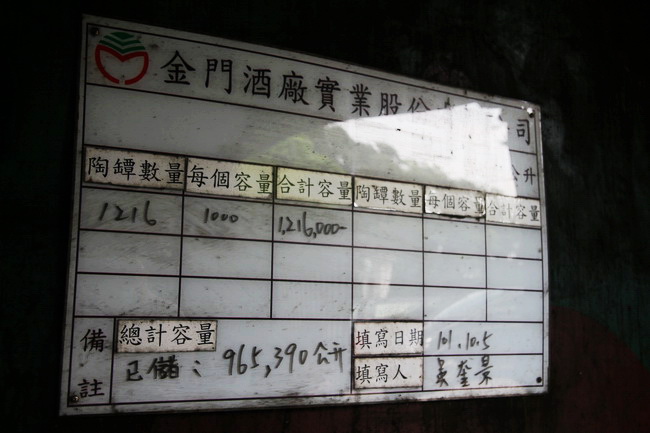 金門酒廠實業股份 司
公升
陶罈數量 每個容量 合計容量 陶罈數量 每個容量 合計容量
1216 1000 1,216,000-
備註 總計容量 填寫日期 101.10.5
已儲：965,390公升 填寫人 吳奎景